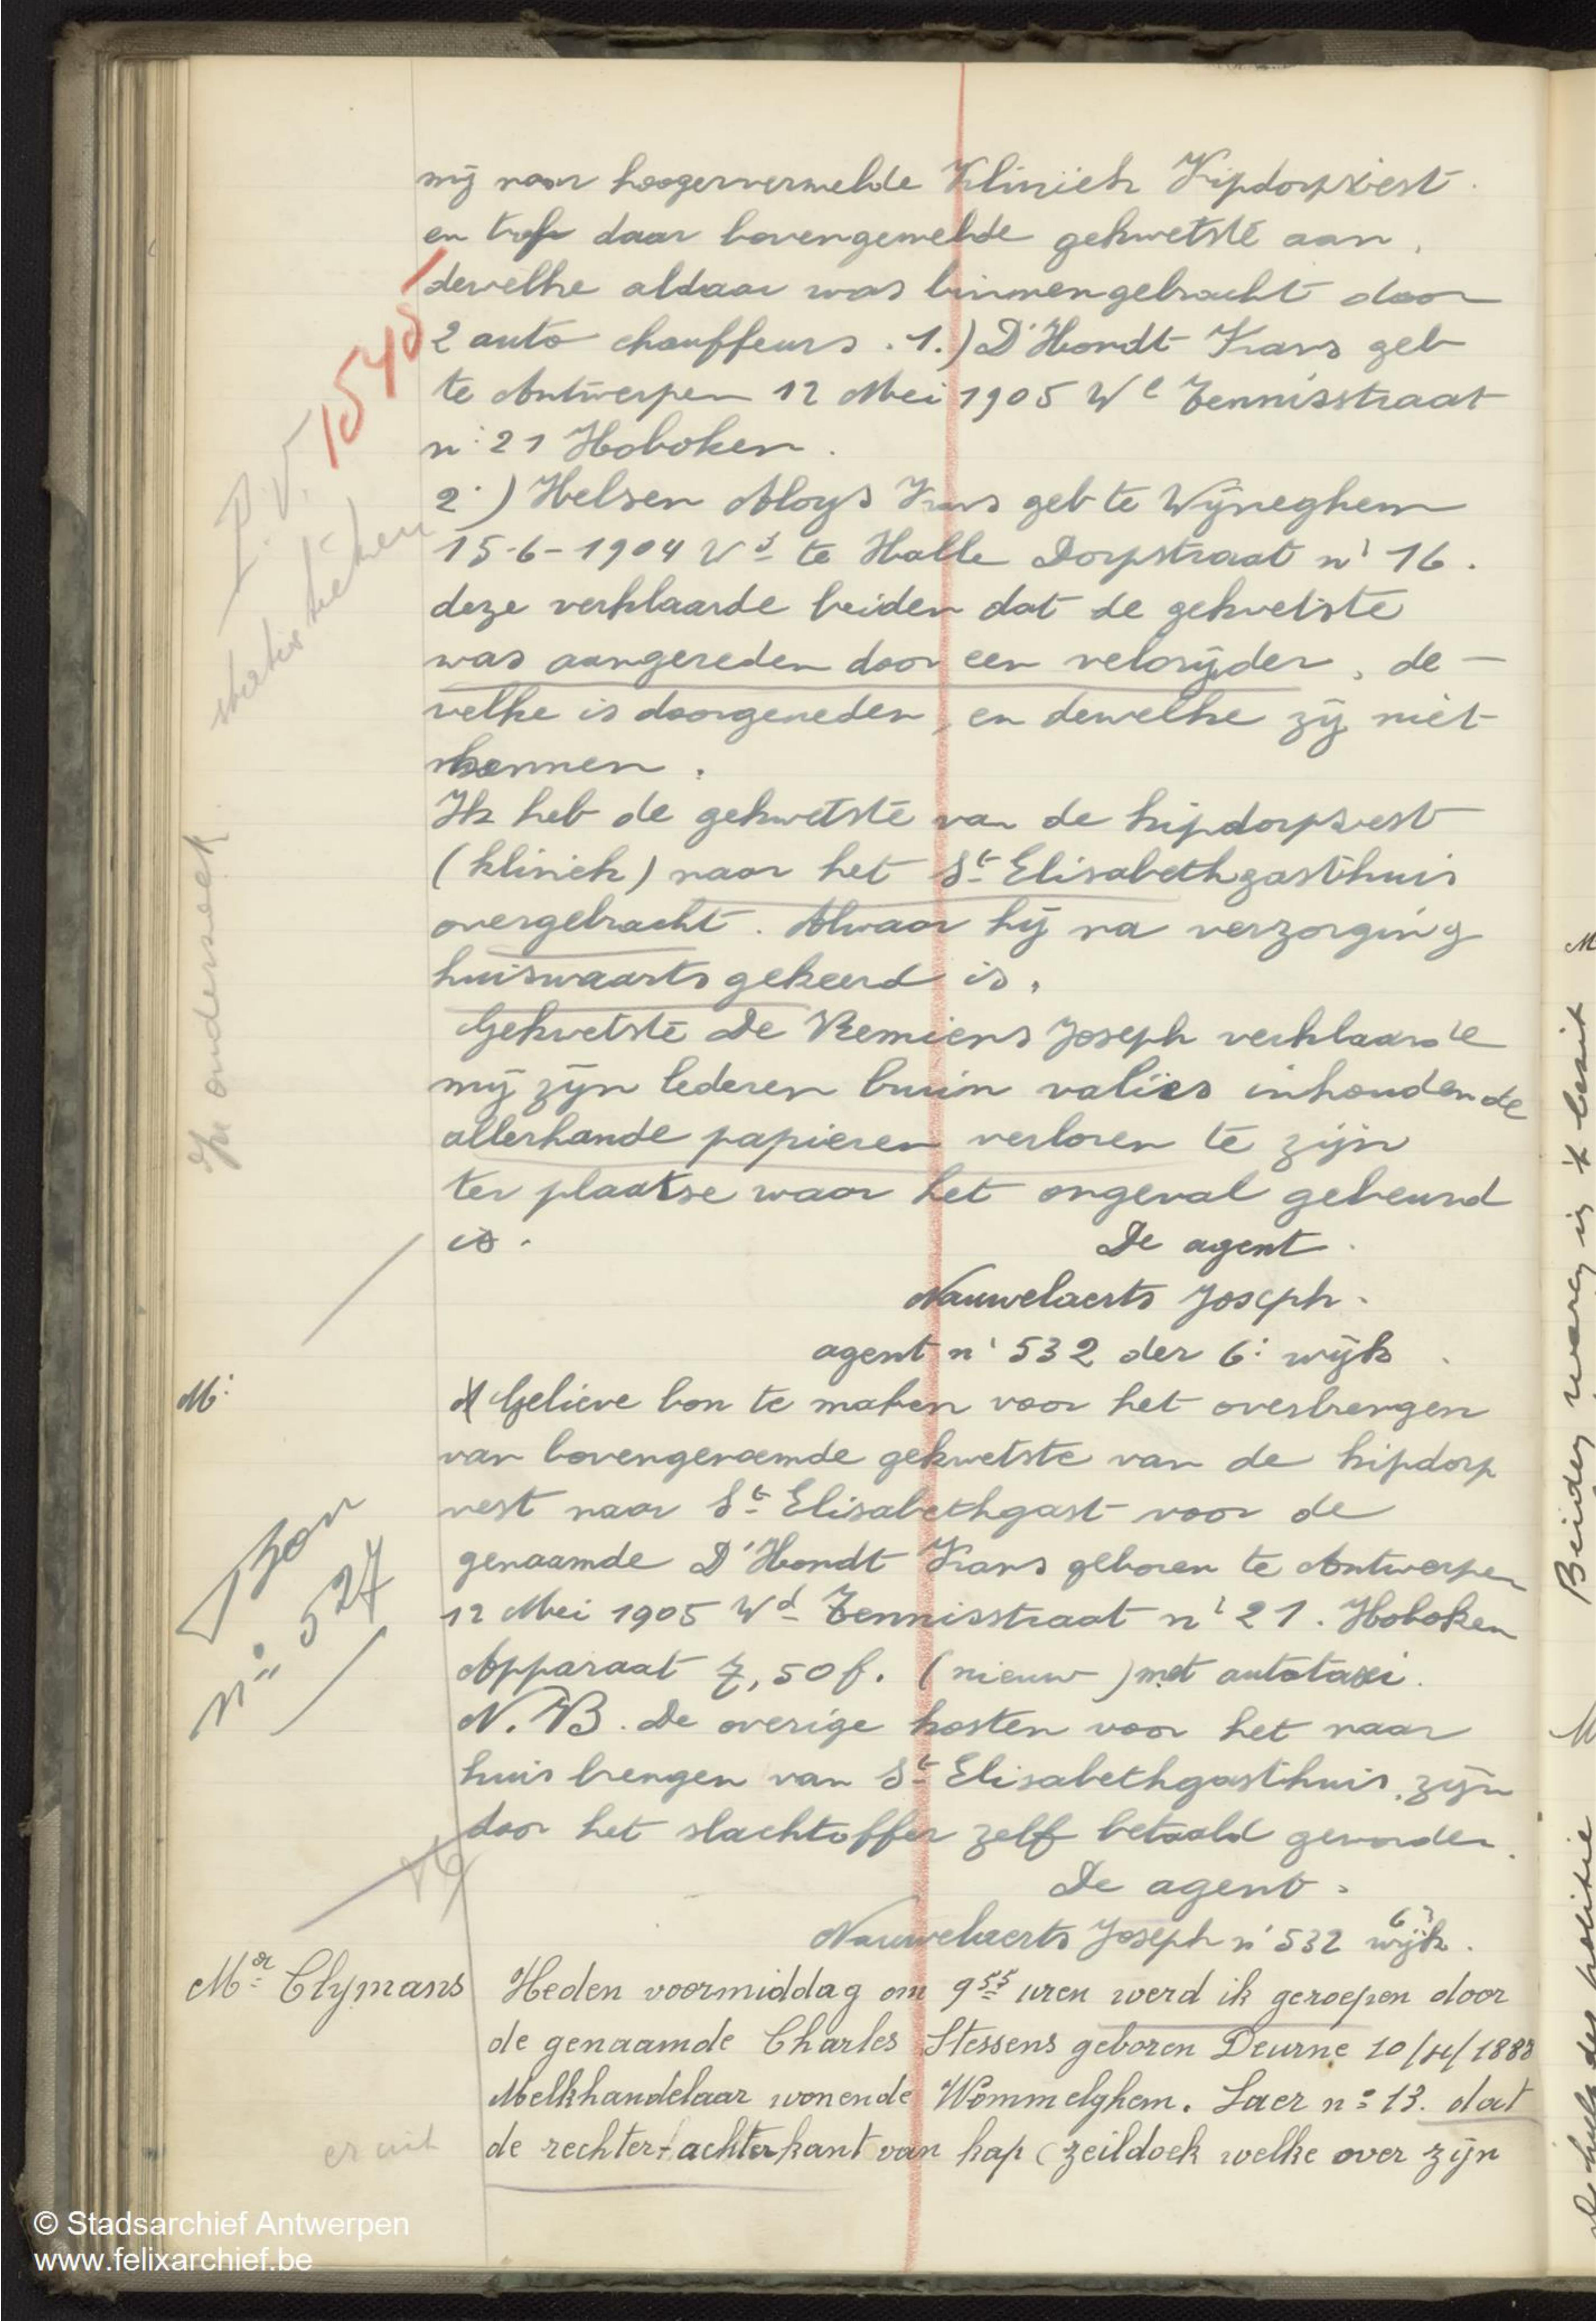 mij naar hoogervermelde Kliniek Kipdorpvest.
en trof daar bovengemelde gekwetste aan,
dewelke aldaar was binnengebracht door
2 auto chauffeurs. 1.) D'Hondt Frans geb
te Antwerpen 12 Mei 1905 Wd Tennisstraat
n° 21 Hoboken.
2.) Helsen Aloys Frans geb te Wijneghem
15-6-1904 te Halle Dorpstraat n° 16.
deze verklaarde beiden dat de gekwetste
was aangereden door een velorijder, de-
welke is doorgereden, en dewelke zij niet
kennen.
Ik heb de gekwetste van de kipdorpvest
(kliniek) naar het St Elisabethgasthuis
overgebracht. Alwaar hij na verzorging
huiswaarts gekeerd is.
Gekwetste De Remiens Joseph verklaarde
mij zijn lederen bruin valies inhoudende
allerhande papieren verloren te zijn
ter plaatse waar het ongeval gebeurd
is.
De agent.
Nauwelaerts Joseph.
agent n° 532 der 6: wijk.
P.V. 1545
statistieken
In onderzoek
M:
Gelieve bon te maken voor het overbrengen
van bovengenoemde gekwetste van de kipdorp
vest naar St Elisabethgast voor de
genaamde D'Hondt Frans geboren te Antwerpen
12 Mei 1905 Wd Tennisstraat n° 21. Hoboken
Apparaat 7,50 f. (nieuw) met autotaxi.
N.B. De overige kosten voor het naar
huis brengen van St Elisabethgasthuis, zijn
door het slachtoffer zelf betaald geworden.
De agent.
Nauwelaerts Joseph n° 532 6° wijk.
bon
n° 527
Mr Clymans
Heden voormiddag om 9 55 uren werd ik geroepen door
de genaamde Charles Stessens geboren Deurne 10/4/1888
Melkhandelaar wonende Wommelghem. Laer n° 13. dat
de rechter achterkant van kap (zeildoek welke over zijn
er uit
Beiden in 't bezit
M
der politie
© Stadsarchief Antwerpen
www.felixarchief.be